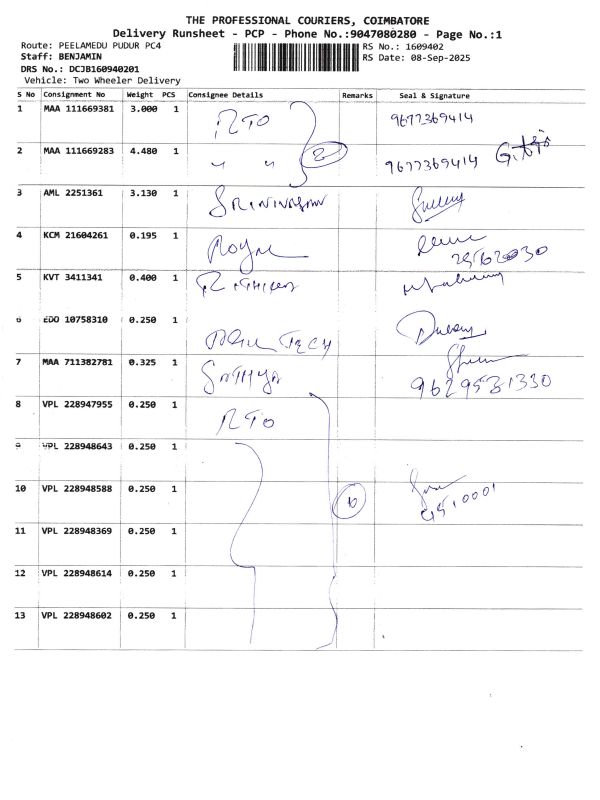 THE PROFESSIONAL COURIERS, COIMBATORE
Delivery Runsheet - PCP - Phone No.:9047080280 - Page No.:1
Route: PEELAMEDU PUDUR PC4 RS No.: 1609402
Staff: BENJAMIN RS Date: 08-Sep-2025
DRS No.: DCJB160940201
Vehicle: Two Wheeler Delivery
S No Consignment No Weight PCS Consignee Details Remarks Seal & Signature
1 MAA 111669381 3.000 1 RTO 9677369414
2 MAA 111669283 4.480 1 " " 2 9677369414
3 AML 2251361 3.130 1 SRINIVASAN
4 KCM 21604261 0.195 1
5 KVT 3411341 0.400 1
6 EDO 10758310 0.250 1 TECH
7 MAA 711382781 0.325 1 SATHYA 9629531330
8 VPL 228947955 0.250 1 RTO
9 VPL 228948643 0.250 1
10 VPL 228948588 0.250 1 10
11 VPL 228948369 0.250 1
12 VPL 228948614 0.250 1
13 VPL 228948602 0.250 1